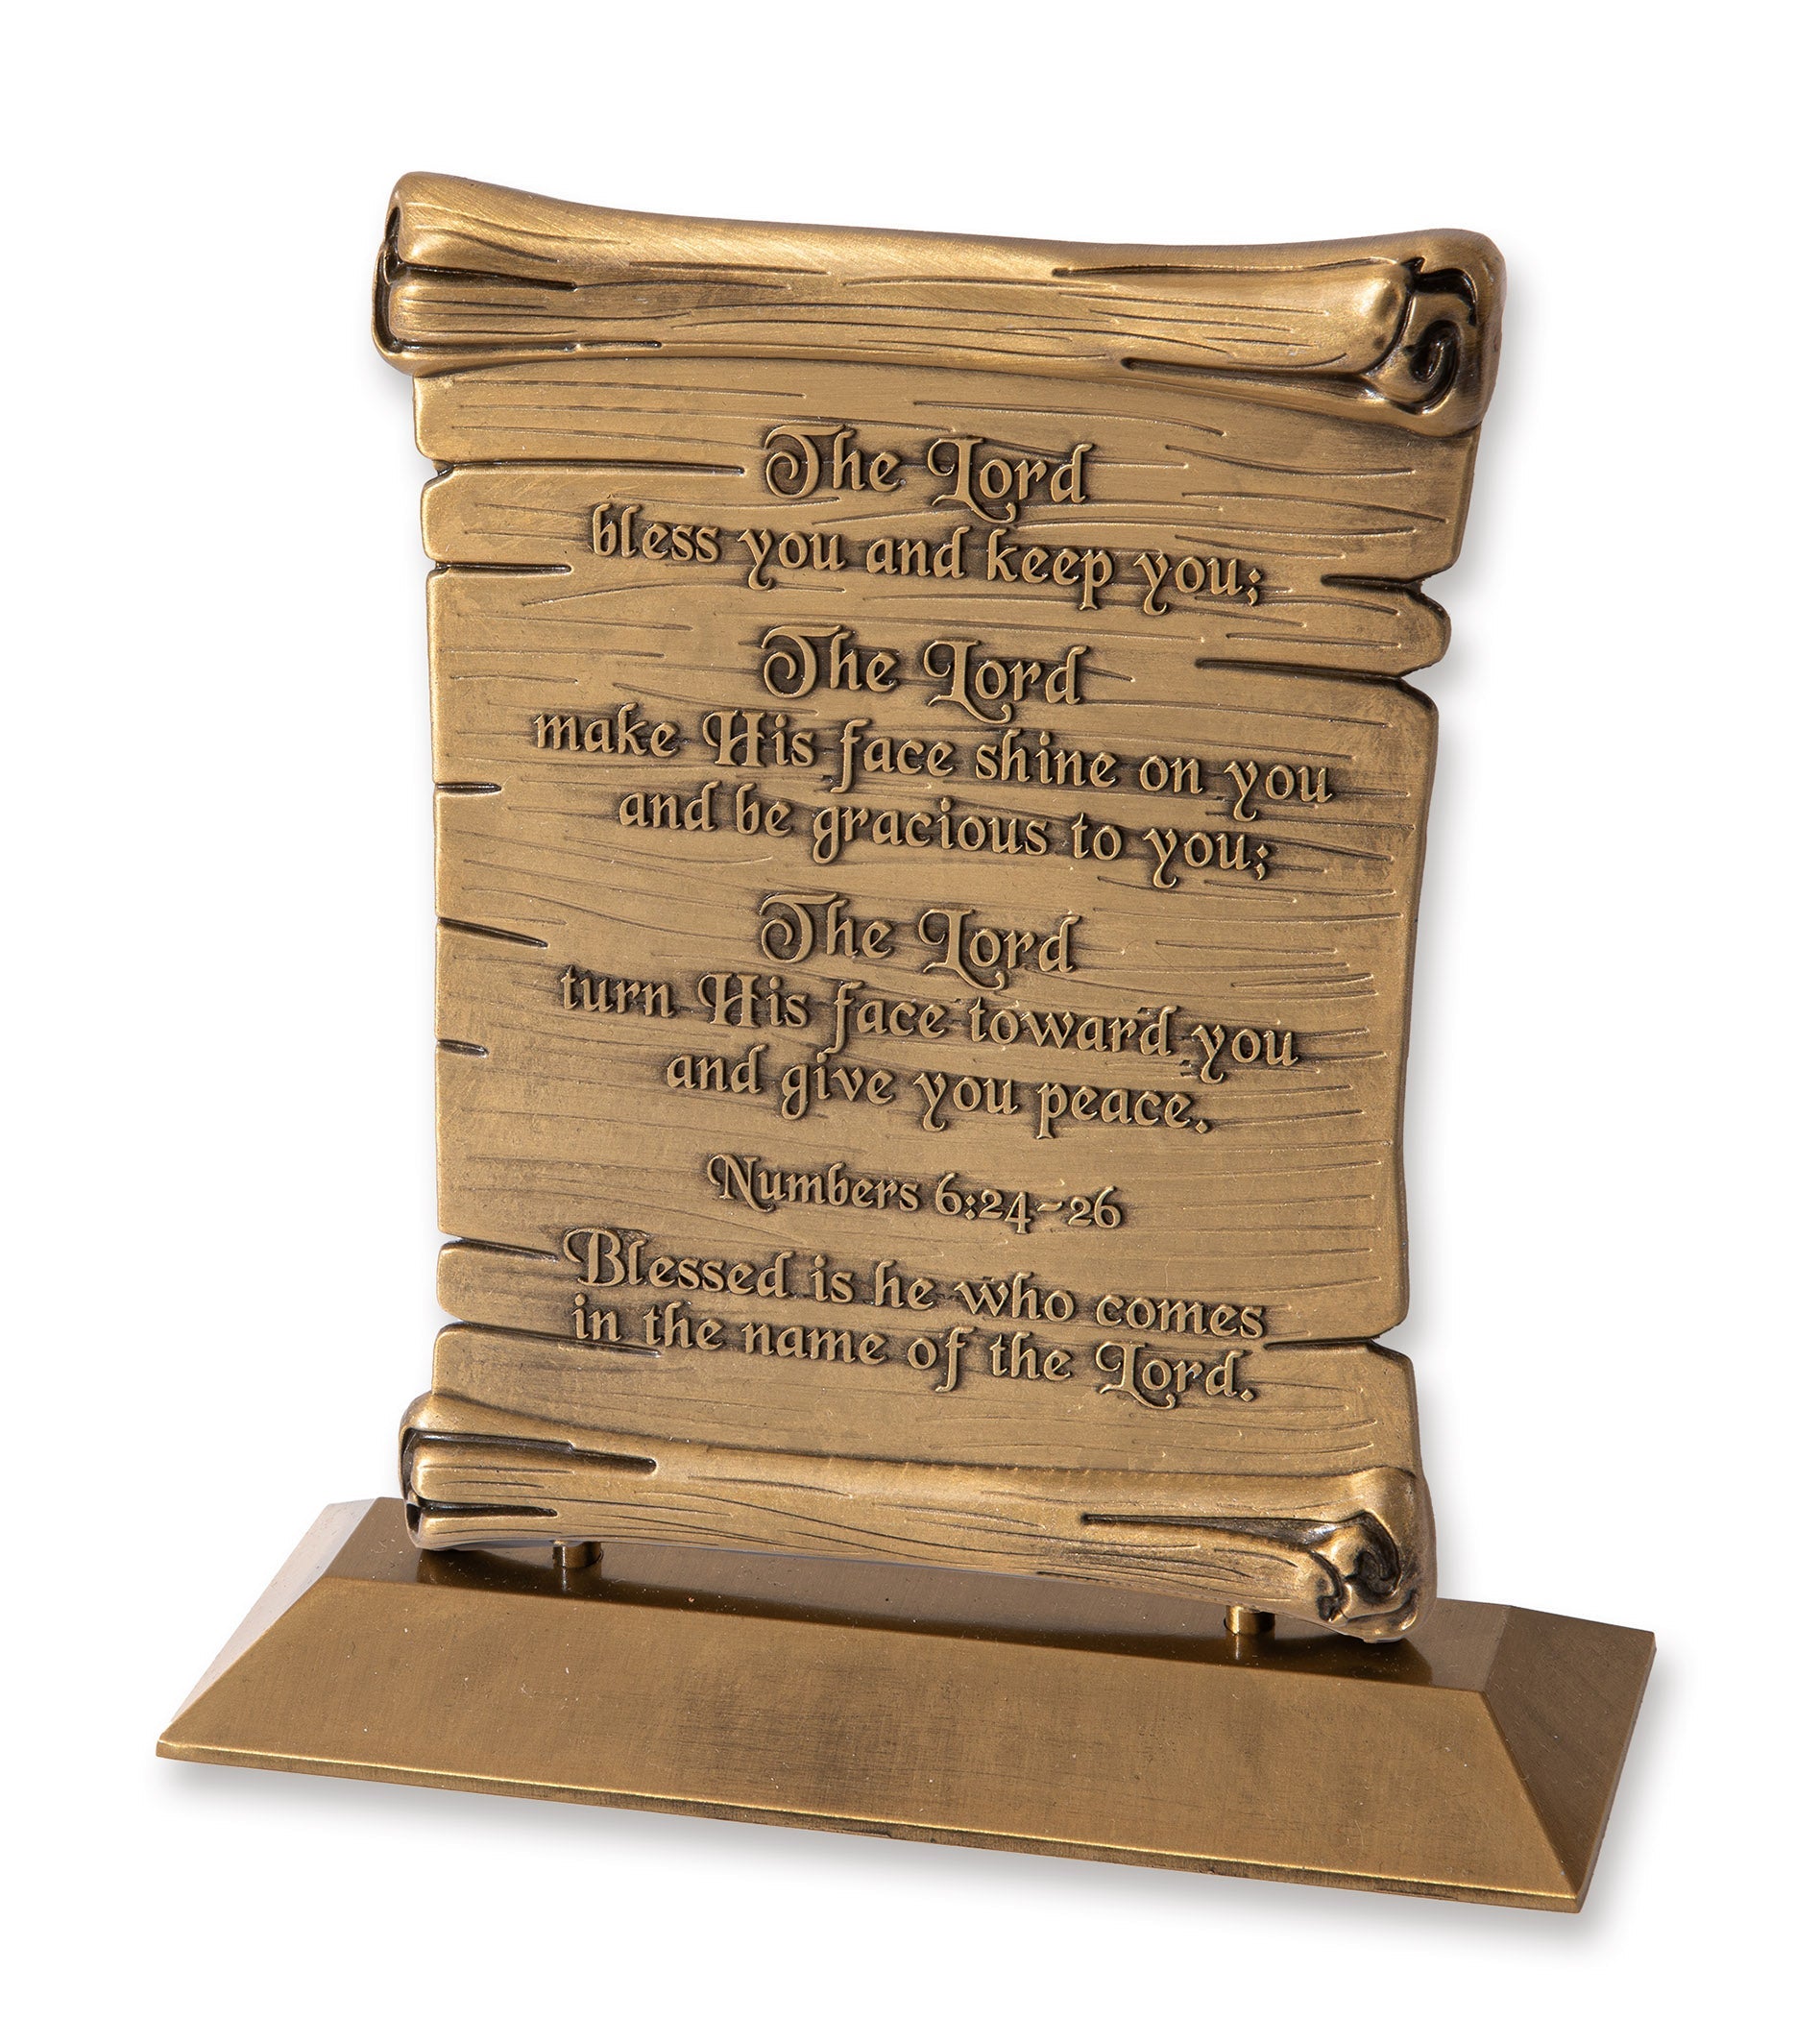 The Lord
bless you and keep you;
The Lord
make His face shine on you
and be gracious to you;
The Lord
turn His face toward you
and give you peace.
Numbers 6:24-26
Blessed is he who comes
in the name of the Lord.